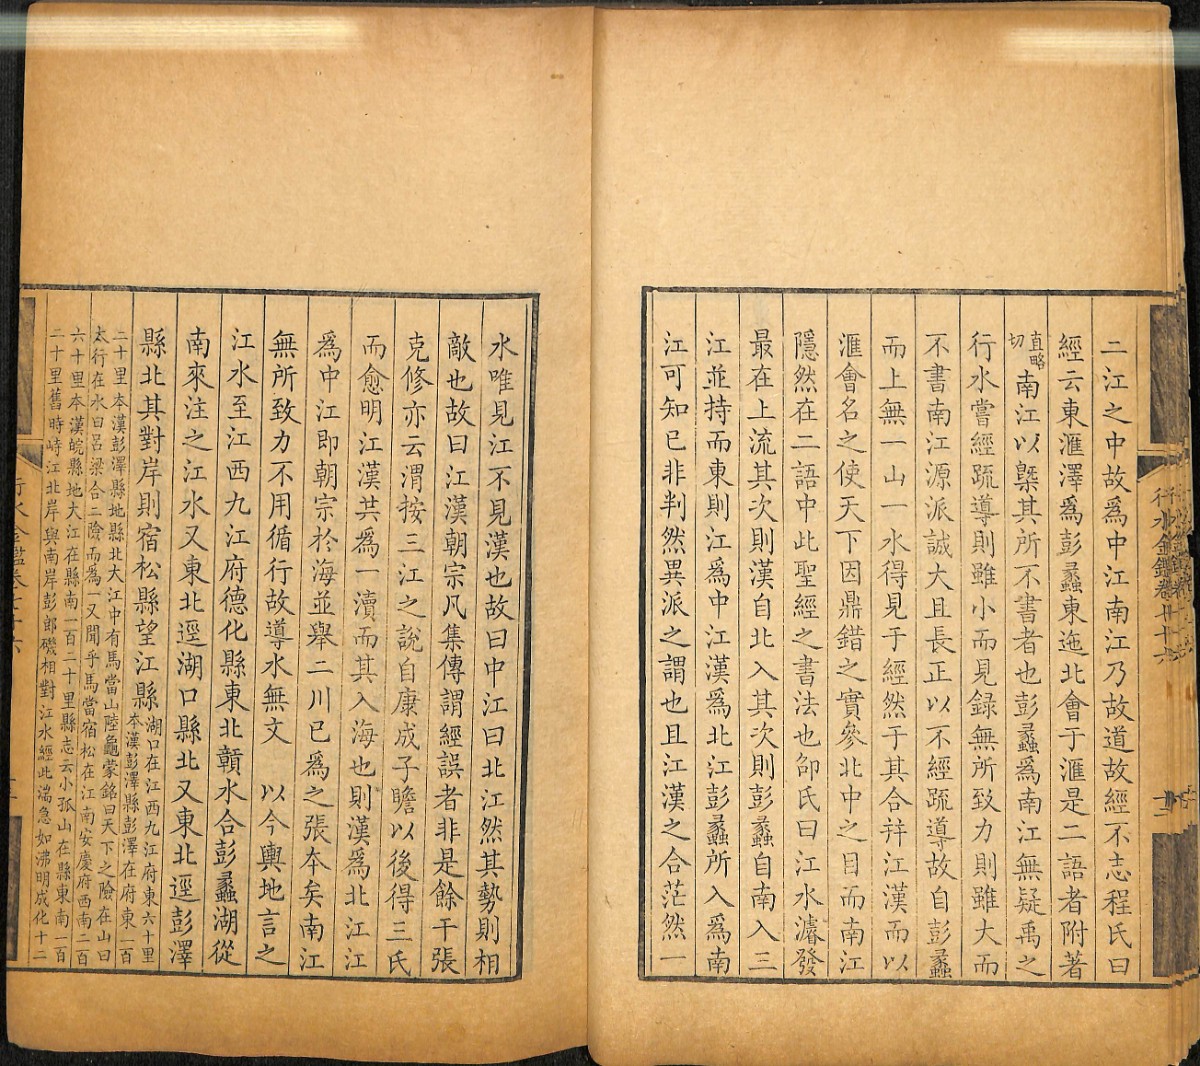 二江之中故爲中江南江乃故道故經不志程氏曰
經云東滙澤爲彭蠡東迤北會于滙是二語者附著
直略切南江以槩其所不書者也彭蠡爲南江無疑禹之
行水嘗經疏導則雖小而見録無所致力則雖大而
不書南江源派誠大且長正以不經疏導故自彭蠡
而上無一山一水得見于經然于其合并江漢而以
滙會名之使天下因鼎錯之實參北中之目而南江
隱然在二語中此聖經之書法也邵氏曰江水濬發
最在上流其次則漢自北入其次則彭蠡自南入三
江並持而東則江爲中江漢爲北江彭蠡所入爲南
江可知已非判然異派之謂也且江漢之合茫然一
水唯見江不見漢也故曰中江曰北江然其勢則相
敵也故曰江漢朝宗凡集傳謂經誤者非是餘干張
克修亦云渭按三江之說自康成子瞻以後得三氏
而愈明江漢共爲一瀆而其入海也則漢爲北江江
爲中江即朝宗於海並舉二川已爲之張本矣南江
無所致力不用循行故導水無文 以今輿地言之
江水至江西九江府德化縣東北贛水合彭蠡湖從
南來注之江水又東北逕湖口縣北又東北逕彭澤
縣北其對岸則宿松縣望江縣湖口在江西九江府東六十里
本漢彭澤縣彭澤在府東一百
二十里本漢彭澤縣地縣北大江中有馬當山陸龜蒙銘曰天下之險在山曰
太行在水曰呂梁合二險而爲一又聞乎馬當宿松在江南安慶府西南二百
六十里本漢皖縣地大江在縣南一百二十里縣志云小孤山在縣東南一百
二十里舊時峙江北岸與南岸彭郎磯相對江水經此湍急如沸明成化十二
行水金鑑卷七十六